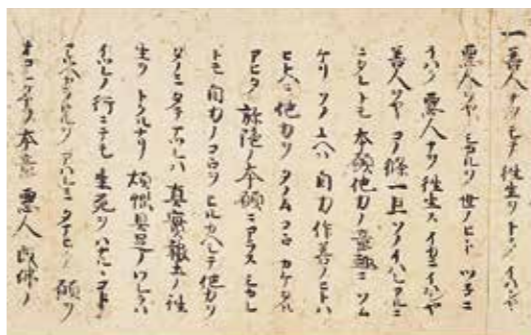 一善人ナヲモテ往生ヲトク イハンヤ
悪人ヲヤ シカルヲ世ノヒト ツネニ
イハク 悪人ナヲ往生ス イカニイハンヤ
善人ヲヤ コノ條一旦ソノイハレアルニ
ニタレトモ 本願他力ノ意趣ニソム
ケリ ソノユヘハ 自力作善ノヒトハ
ヒトヘニ他力ヲ タノムコヽロ カケタル
アヒタ 弥陀ノ本願ニアラス シカレ
トモ 自力ノコヽロヲ ヒルカヘシテ 他力ヲ
タノミタテマツレハ 真實報土ノ往
生ヲ トクルナリ 煩惱具足ノワレラハ
イツレノ行ニテモ 生死ヲハナルヽコト
アルヘカラサルヲ アハレミタマヒテ 願ヲ
オコシタマフ本意 悪人成佛ノ